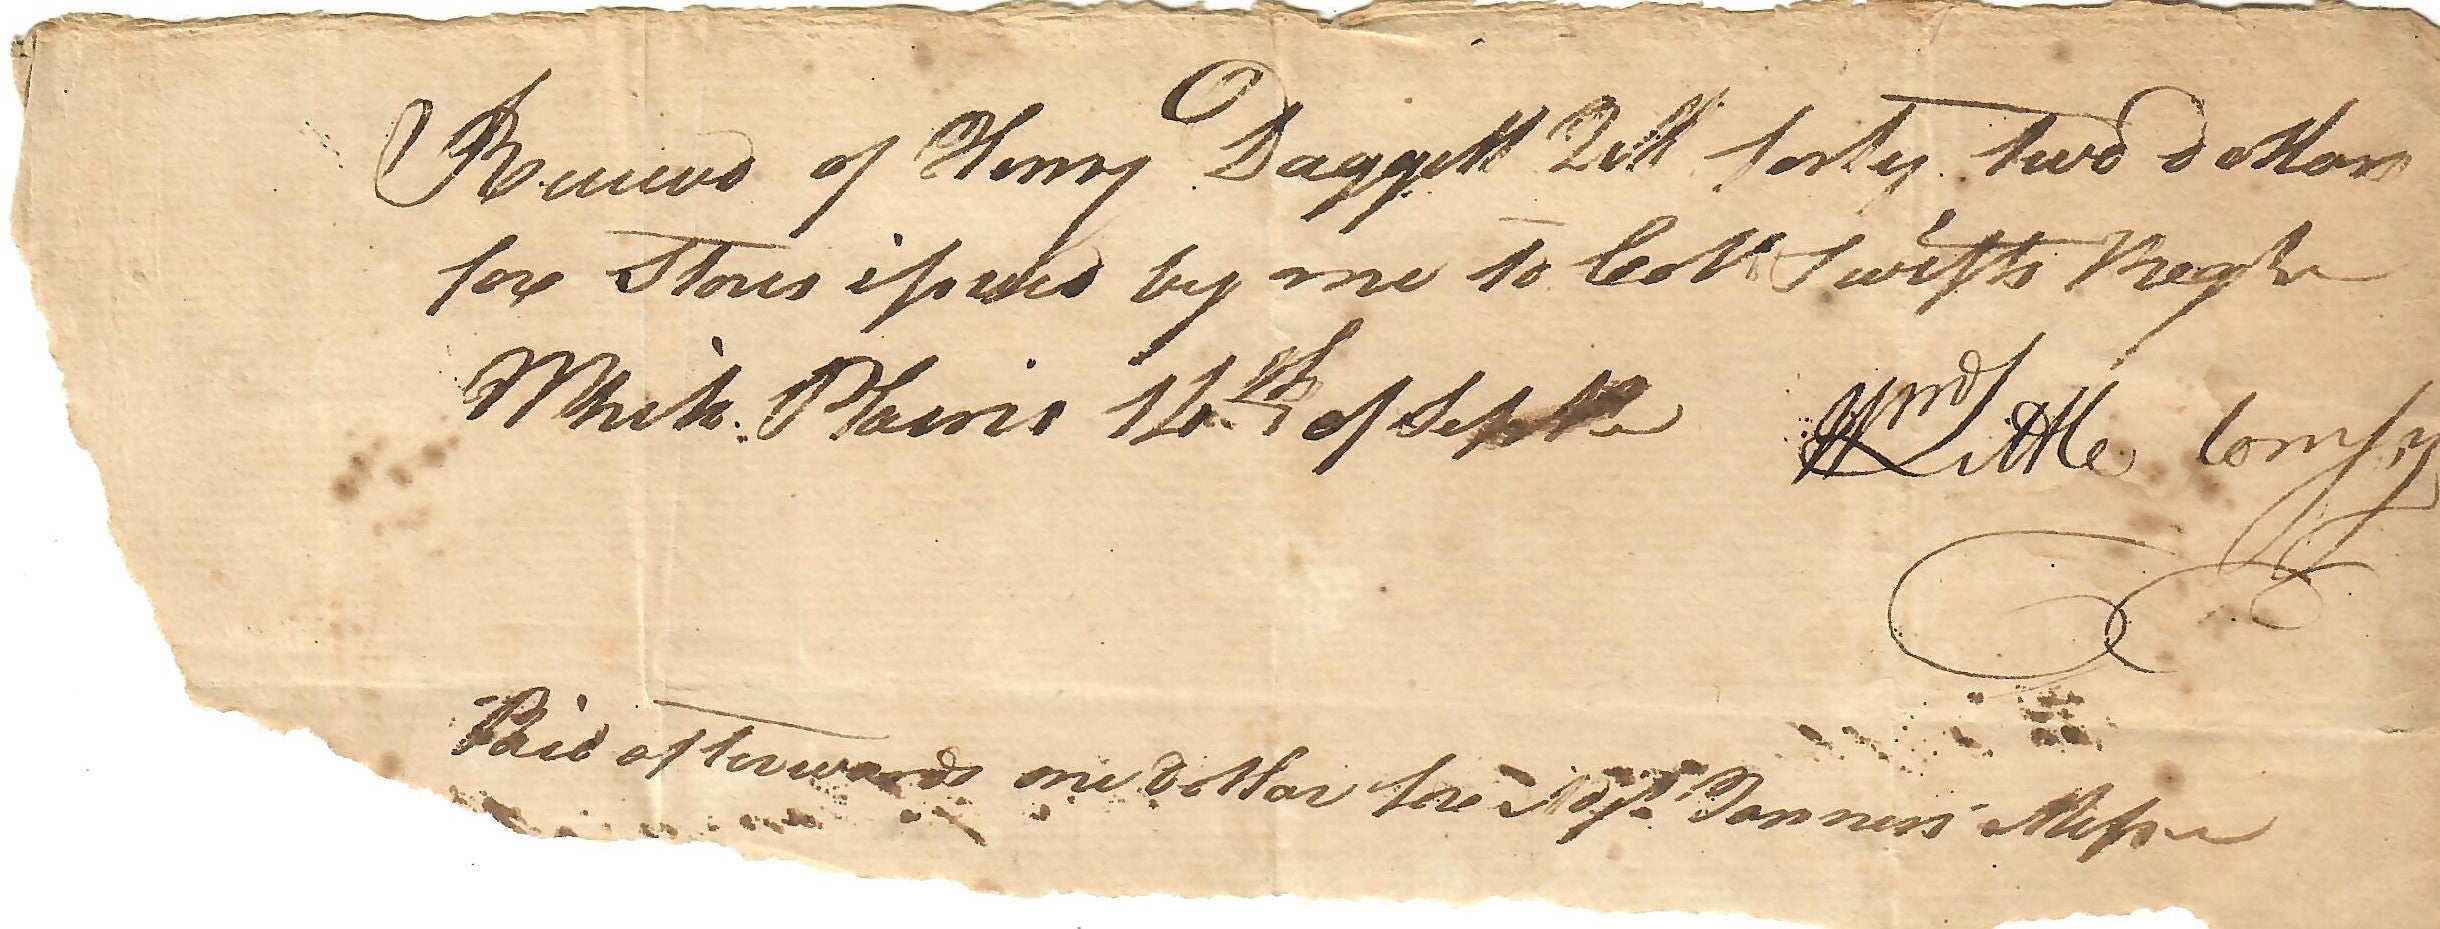 Received of Henry Daggett forty two dollars
for Stores issued by me to Coll Swifts Regt
White Plains of Sept
Wm Little Comsy
Paid afterwards one dollar for Adjt Tanners Mess